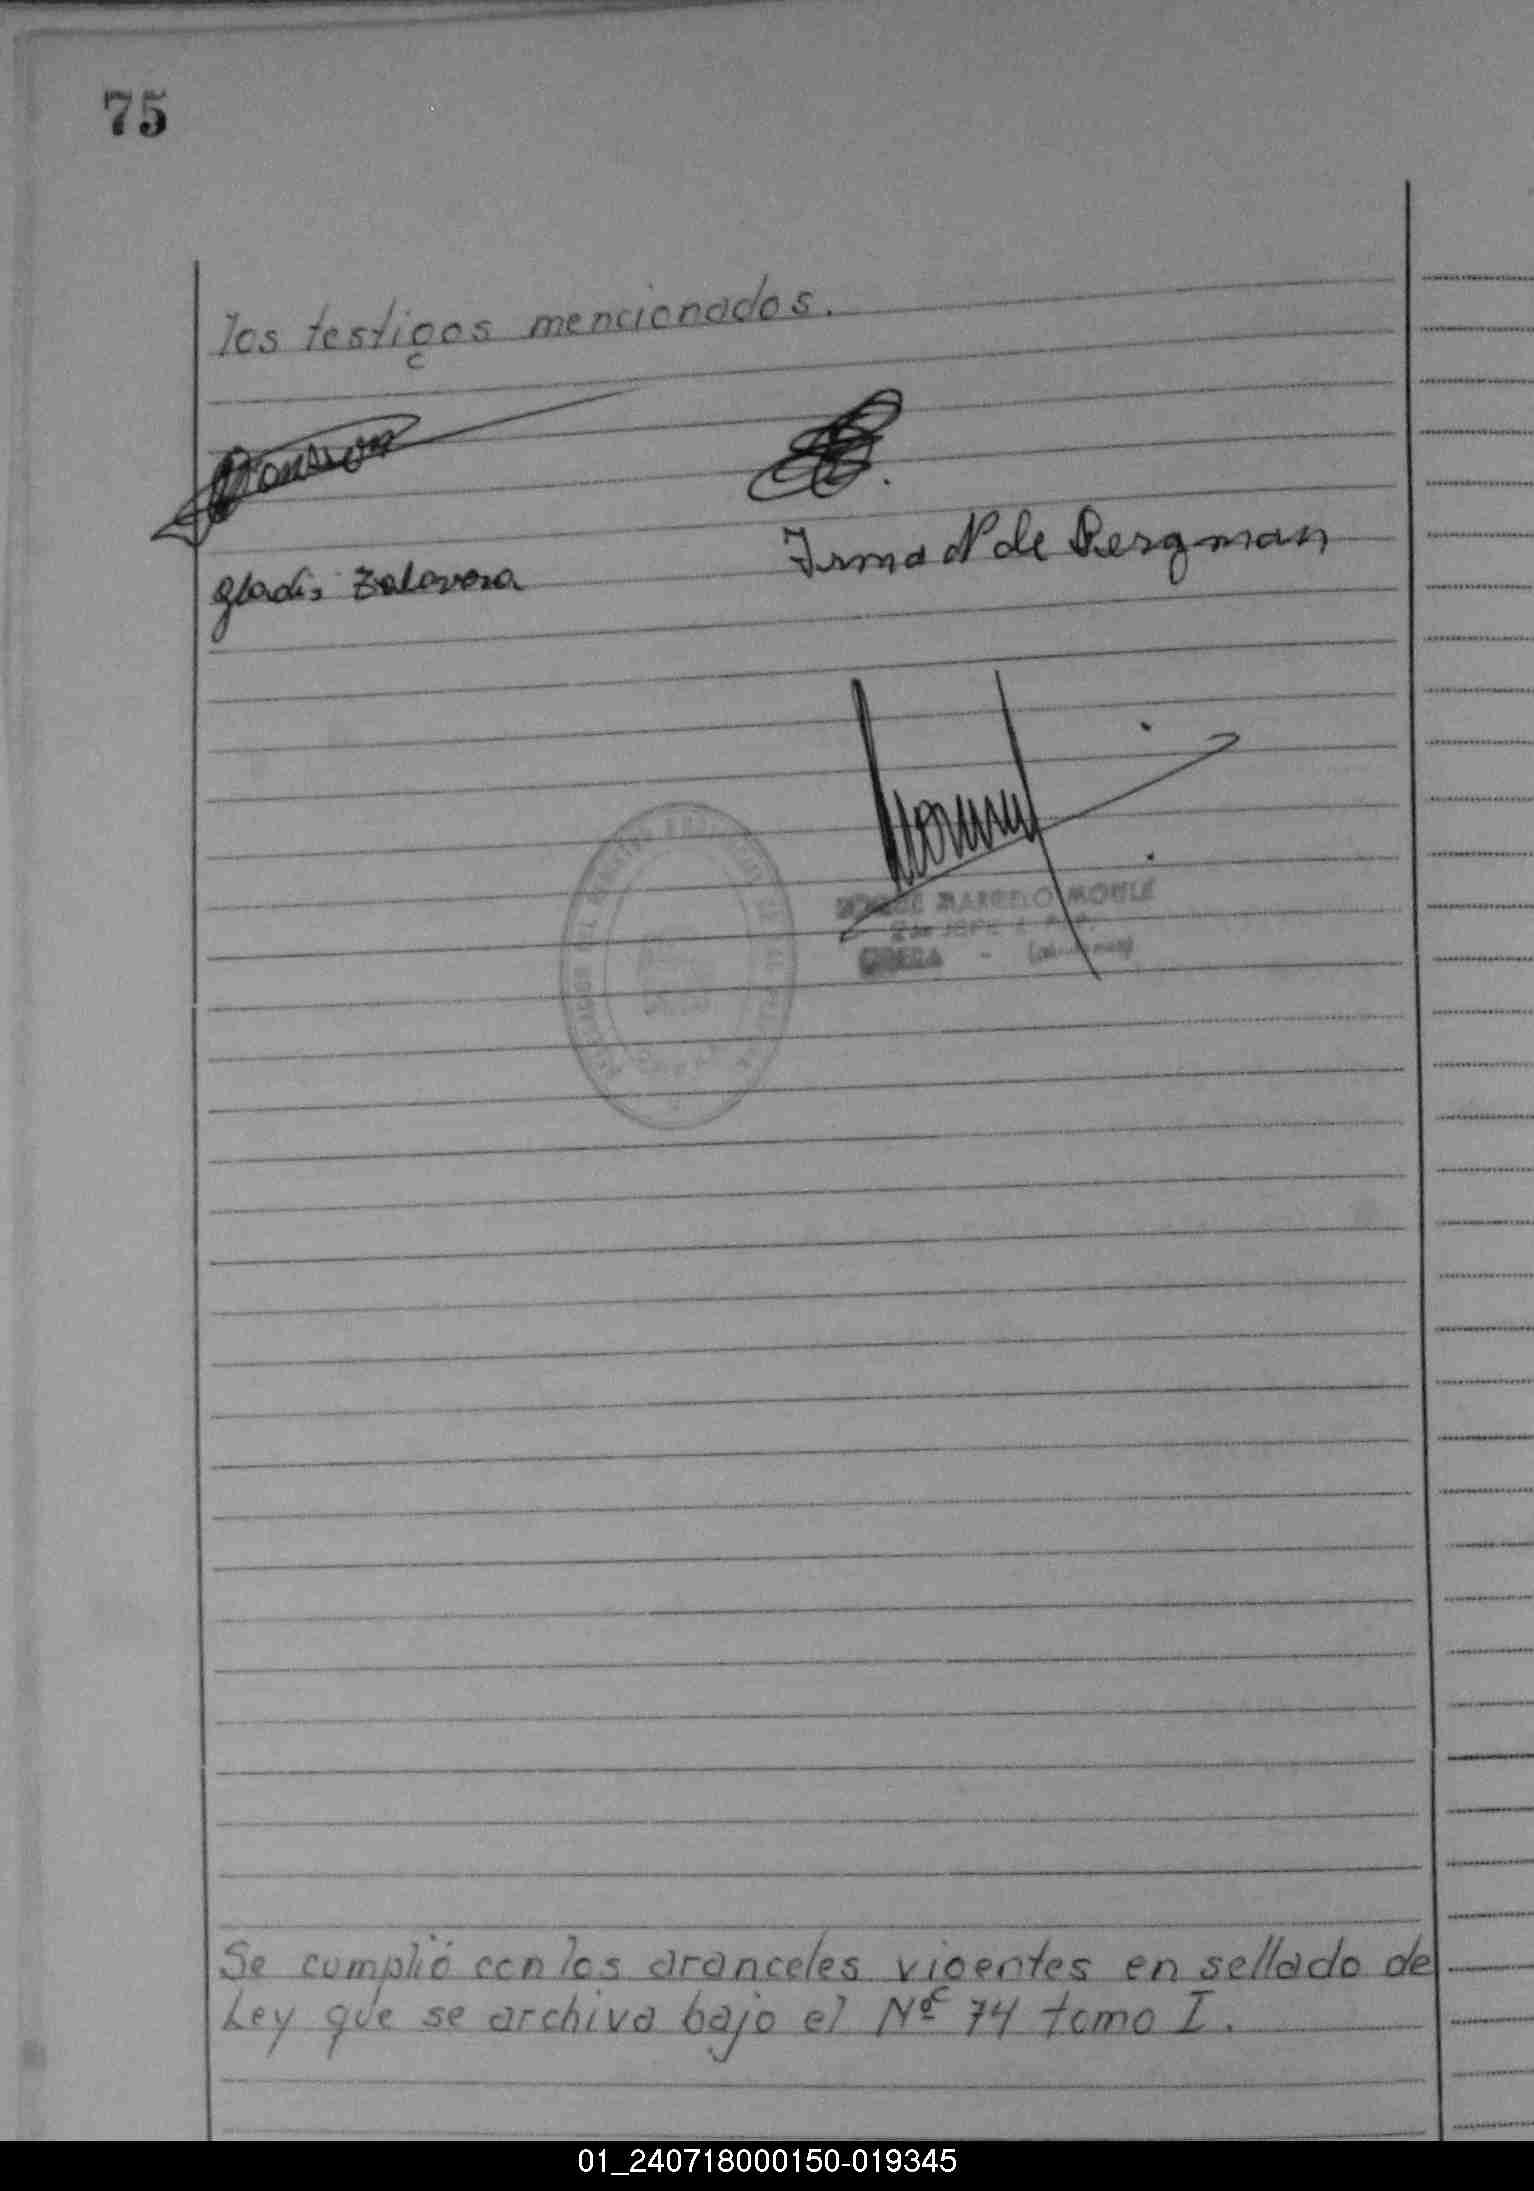 75
los testigos mencionados.
Gladis Zalavera
Irma N de Bergman
MARCELO MONLE
2do JEFE
OBERA - (Misiones)
Se cumplió con los aranceles vigentes en sellado de
Ley que se archiva bajo el Nº 74 tomo I.
01_240718000150-019345